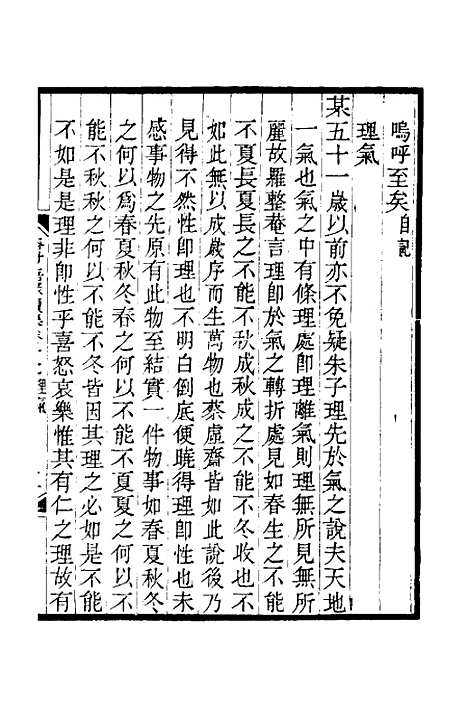 嗚呼至矣自記
理氣
某五十一歲以前亦不免疑朱子理先於氣之說夫天地
一氣也氣之中有條理處即理離氣則理無所見無所
麗故羅整菴言理即於氣之轉折處見如春生之不能
不夏長夏長之不能不秋成秋成之不能不冬收也不
如此無以成歲序而生萬物也蔡虛齋皆如此說後乃
見得不然性即理也不明白倒底便曉得理即性也未
感事物之先原有此物至結實一件物事如春夏秋冬
之何以為春夏秋冬春之何以不能不夏夏之何以不
能不秋秋之何以不能不冬皆因其理之必如是不能
不如是是理非即性乎喜怒哀樂惟其有仁之理故有